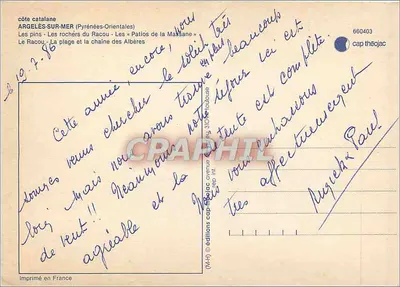 côte catalane
ARGELÈS-SUR-MER (Pyrénées-Orientales)
Les pins - Les rochers du Racou - Les « Patios de la Massane »
Le Racou - La plage et la chaîne des Albères
660403
cap théojac
le 19.7.86
Cette année, encore, nous
sommes venus chercher le soleil très
loin, mais nous avons trouvé beaucoup
de vent !! Néanmoins notre séjour ici est
agréable et la détente est complète.
Nous vous embrassons
très affectueusement
Paul
(M-H) © éditions cap-théojac
CPARAMA
imprimé en France